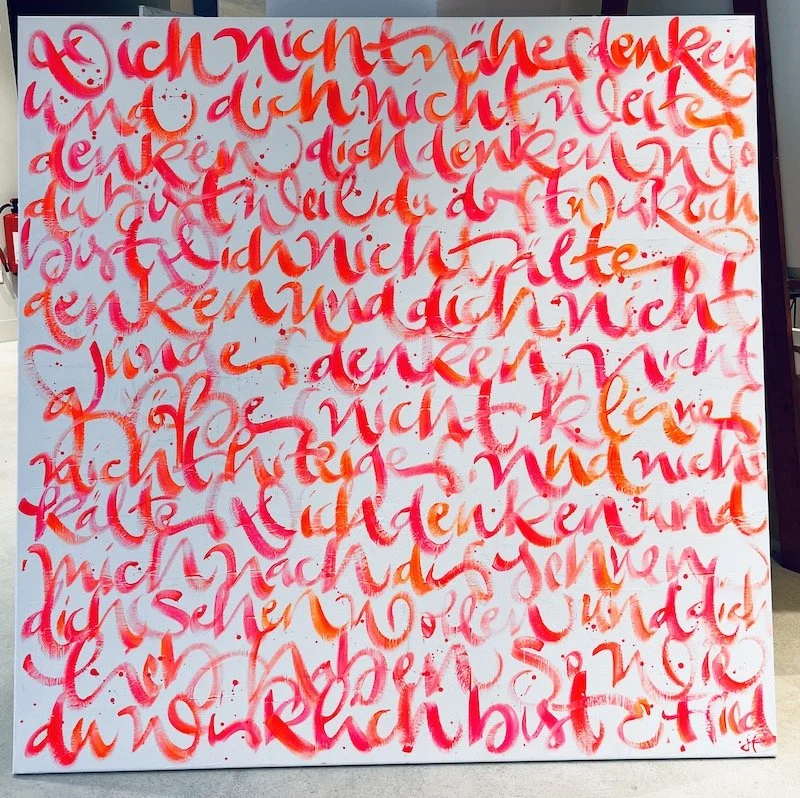 Dich nicht näher denken
und dich nicht weiter
denken dich denken wo
du bist weil du dort wirklich
bist Dich nicht älter
denken und dich nicht
jünger denken nicht
größer nicht kleiner
nicht hitziger und nicht
kälter Dich denken und
mich nach dir sehnen
dich sehen wollen und dich
lieb haben so wie
du wirklich bist E. Fried